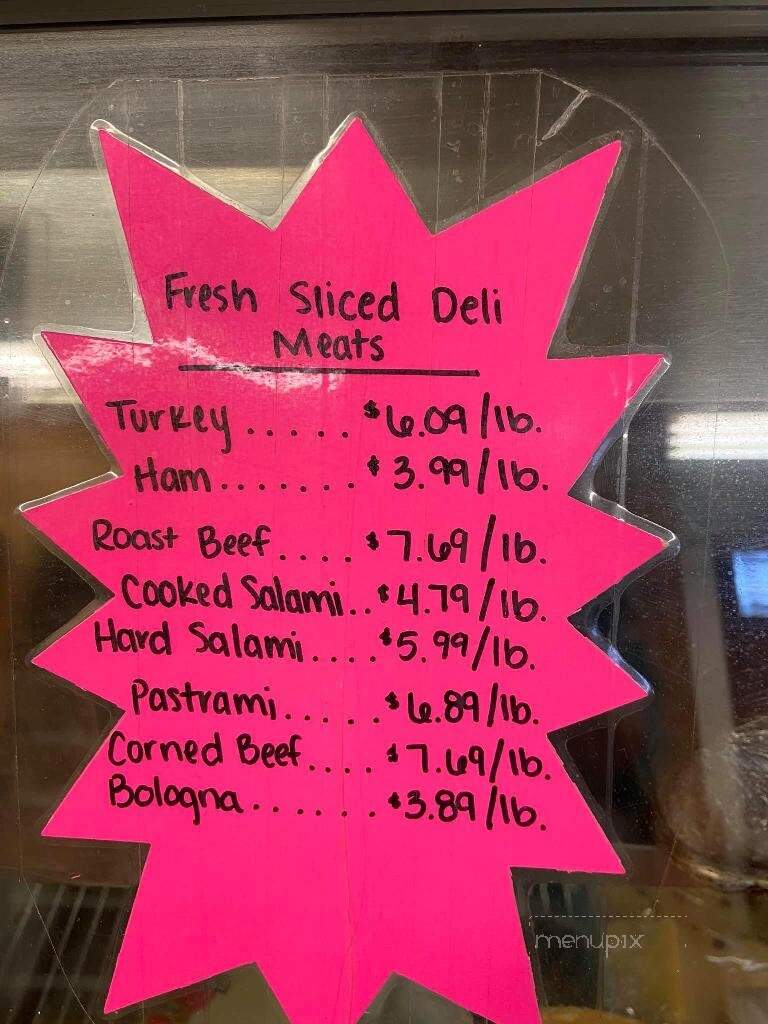 Fresh Sliced Deli
Meats
Turkey ..... $6.09/lb.
Ham ....... $3.99/lb.
Roast Beef .... $7.69/lb.
Cooked Salami .. $4.79/lb.
Hard Salami .... $5.99/lb.
Pastrami ..... $6.89/lb.
Corned Beef .... $7.69/lb.
Bologna ...... $3.89/lb.
menupix